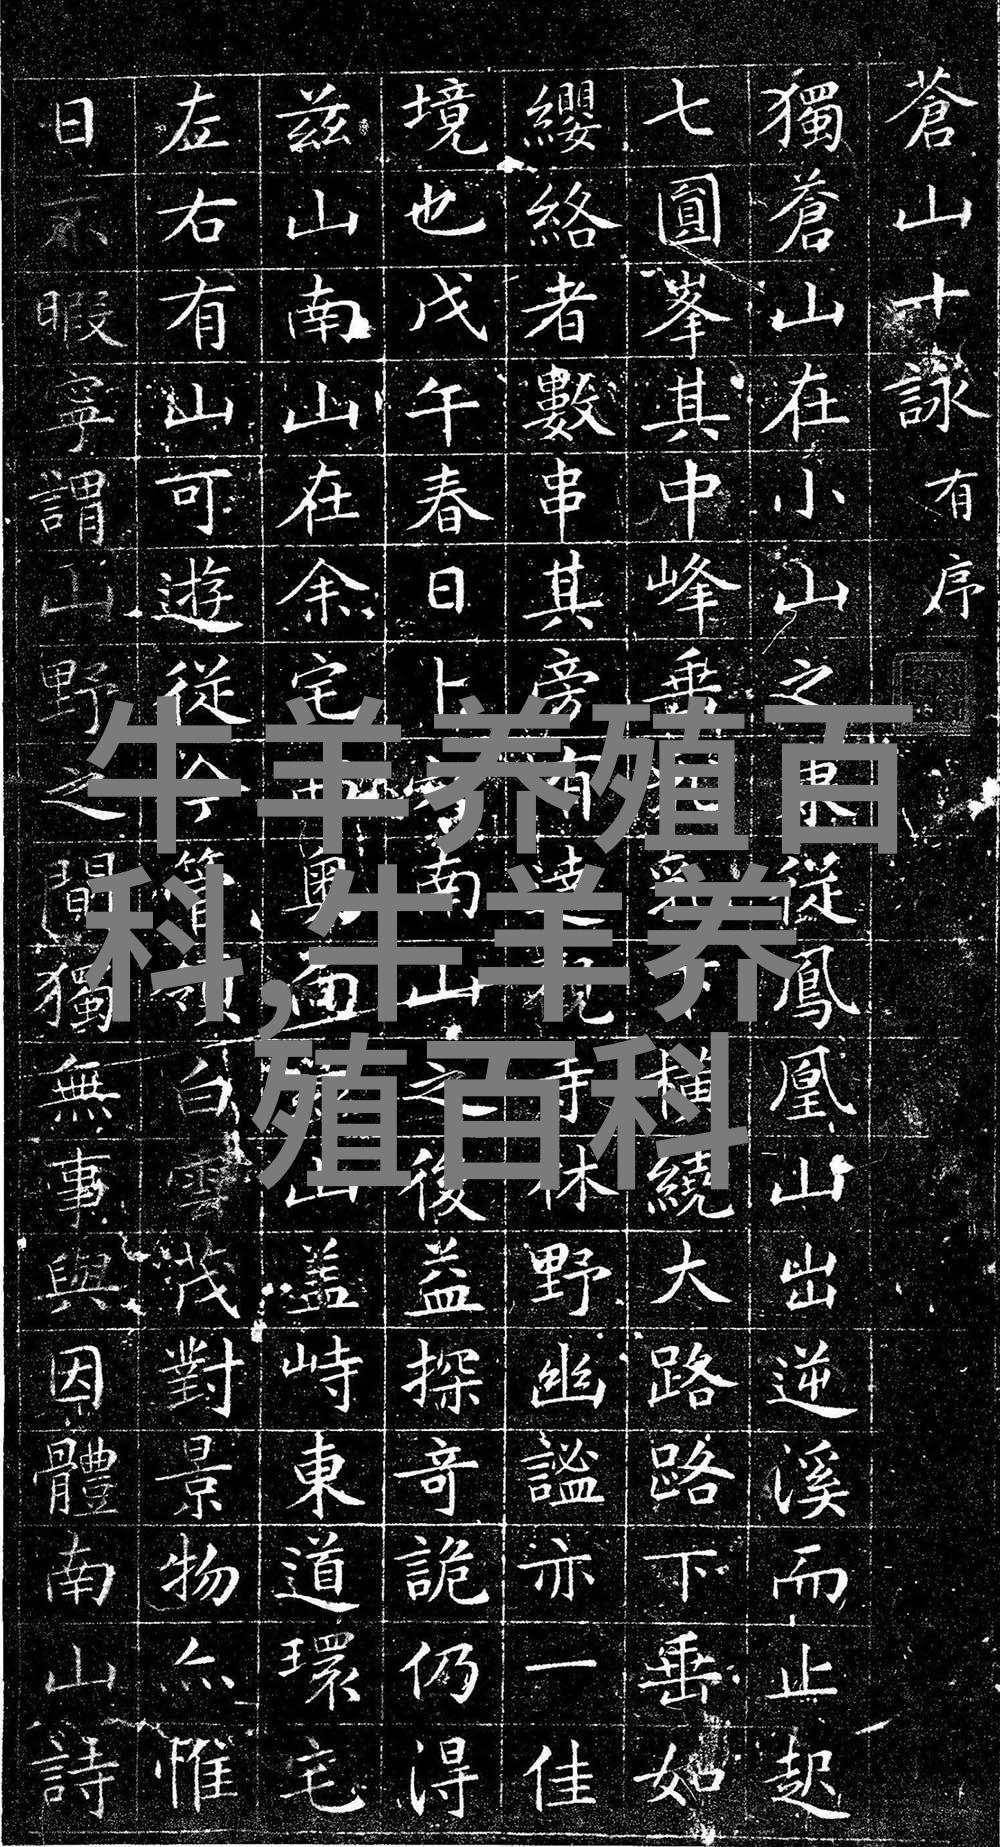 蒼山十詠 有序
獨蒼山在小山之東從鳳凰山出逆溪而止起
七圓峯其中峰垂下橫繞大路路下垂如
纓絡者數串其旁有遠視寺林野幽謐亦一佳
境也戊午春日上南山之後益探奇詭仍得
茲山南山在余宅西奧面山蓋峙東道環宅
左右有山可遊從今管領白雲茂對景物亦惟
日不暇寧謂山野之間獨無事與因體南山詩
牛羊养殖百
科,牛羊养
殖百科